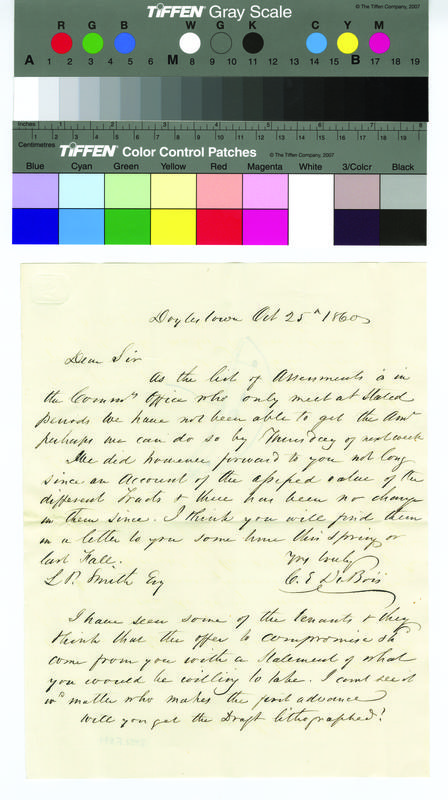 TIFFEN Gray Scale
© The Tiffen Company, 2007
R G B W G K C Y M
A 1 2 3 4 5 6 M 8 9 10 11 12 13 14 15 B 17 18 19
Inches 1 2 3 4 5 6 7 8
Centimetres 1 2 3 4 5 6 7 8 9 10 11 12 13 14 15 16 17 18 19
TIFFEN Color Control Patches
© The Tiffen Company, 2007
Blue Cyan Green Yellow Red Magenta White 3/Color Black
Doylestown Oct 25th 1860
Dear Sir
As the list of Assessments is in
the Commrs Office who only meet at Stated
periods we have not been able to get the Amt
perhaps we can do so by Thursday of next week
We did however forward to you not long
since an Account of the assessed value of the
different Tracts & there has been no change
in them since. I think you will find them
in a letter to you some time this spring or
last Fall.
Yrs truly
L P. Smith Esq
C. E DuBois
I have seen some of the tenants & they
think that the offer to compromise shd
come from you with a Statement of what
you would be willing to take. I cant see it
wd matter who makes the first advance
Will you get the Draft lithographed?